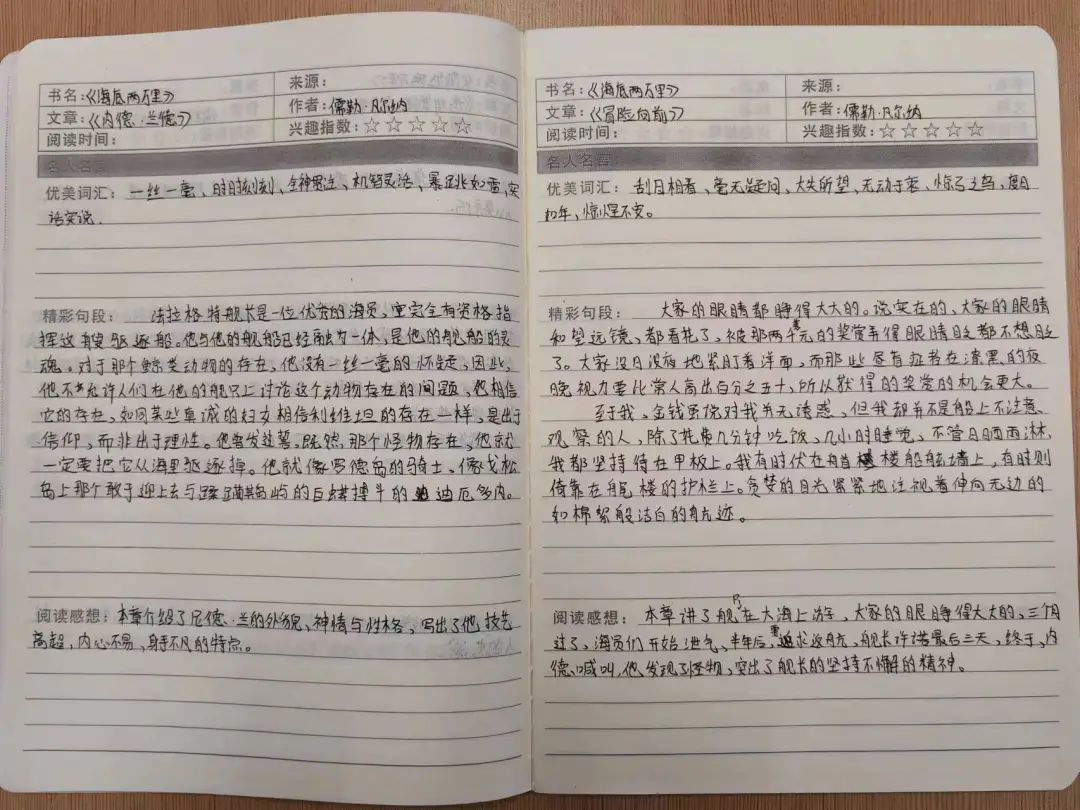 书名:《海底两万里》
来源:
文章:《内德·兰德》
作者:儒勒·凡尔纳
阅读时间:
兴趣指数:☆☆☆☆☆
名人名言:
优美词汇: 一丝一毫、时时刻刻、全神贯注、机智灵活、暴跳如雷、实
话实说.
精彩句段: 法拉格特舰长是一位优秀的海员,完全有资格指
挥这艘驱逐舰。他与他的舰船已经融为一体,是他的舰船的灵
魂。对于那个鲸类动物的存在,他没有一丝一毫的怀疑,因此,
他不允许人们在他的船只上讨论这个动物存在的问题,他相信
它的存在,如同某些虔诚的妇女相信利维坦的存在一样,是出于
信仰,而非出于理性。他曾发过誓,既然那个怪物存在,他就
一定要把它从海里驱逐掉。他就像罗德岛的骑士,像戈松
岛上那个敢于迎上去与蹂躏其岛屿的巨蟒搏斗的迪厄多内。
阅读感想: 本章介绍了尼德·兰的外貌、神情与性格,写出了他技艺
高超,内心不易,身手不凡的特点。
书名:《海底两万里》
来源:
文章:《冒险向前》
作者:儒勒·凡尔纳
阅读时间:
兴趣指数:☆☆☆☆☆
名人名言:
优美词汇: 刮目相看、毫无疑问、大失所望、无动于衷、惊弓之鸟、度日
如年、惊惶不安。
精彩句段: 大家的眼睛都睁得大大的。说实在的,大家的眼睛
和望远镜,都看花了,被那两千美元的奖赏弄得眼睛眨都不想眨
了。大家没日没夜地紧盯着洋面,而那些昼盲症者在漆黑的夜
晚视力要比常人高出百分之五十,所以获得的奖赏的机会更大。
至于我,金钱虽说对我并无诱惑,但我却并不是船上不注意
观察的人,除了花费几分钟吃饭,几小时睡觉,不管日晒雨淋,
我都坚持待在甲板上。我有时伏在艏楼船舷墙上,有时则
倚靠在艉楼的护栏上。贪婪的目光紧紧地注视着伸向无边的
如棉絮般洁白的航迹。
阅读感想: 本章讲了舰只在大海上游,大家的眼睁得大大的,三个月
过了,海员们开始泄气,半年后,要求返航,舰长许诺最后三天,终于,内
德喊叫,他发现了怪物,突出了舰长的坚持不懈的精神。